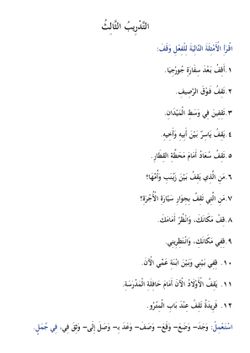 التَّدْرِيبُ الثَّالِثُ
اقْرَأْ الْأَمْثِلَةَ التَّالِيَةَ لِلْفِعْلِ وَقَفَ:
١.أَقِفُ بَعْدَ سِفَارَةِ جُورْجِيَا.
٢.نَقِفُ فَوْقَ الرَّصِيفِ.
٣.تَقِفِينَ فِي وَسَطِ الْمَيْدَانِ.
٤.يَقِفُ يَاسِرٌ بَيْنَ أَبِيهِ وَأَخِيهِ.
٥.تَقِفُ سُعَادُ أَمَامَ مَحَطَّةِ القِطَارِ.
٦.مَنِ الَّذِي يَقِفُ بَيْنَ زَيْنَبَ وَأُمِّهَا؟
٧.مَنِ الَّتِي تَقِفُ بِجِوَارِ سَيَّارَةِ الْأُجْرَةِ؟
٨.قِفْ مَكَانَكَ، وَانْظُرْ أَمَامَكَ.
٩.قِفِي مَكَانَكِ، وَانْتَظِرِينِي.
١٠. قِفِي بَيْنِي وَبَيْنَ ابْنَةِ عَمِّي الْآنَ.
١١. يَقِفُ الْأَوْلَادُ الْآنَ أَمَامَ حَافِلَةِ الْمَدْرَسَةِ.
١٢. فَرِيدَةُ تَقِفُ عِنْدَ بَابِ الْمَتْرُو.
اسْتَعْمِلْ: وَجَدَ- وَضَعَ- وَقَعَ- وَصَفَ- وَعَدَ بِـ- وَصَلَ إِلَى- وَثِقَ فِي، فِي جُمَلٍ.